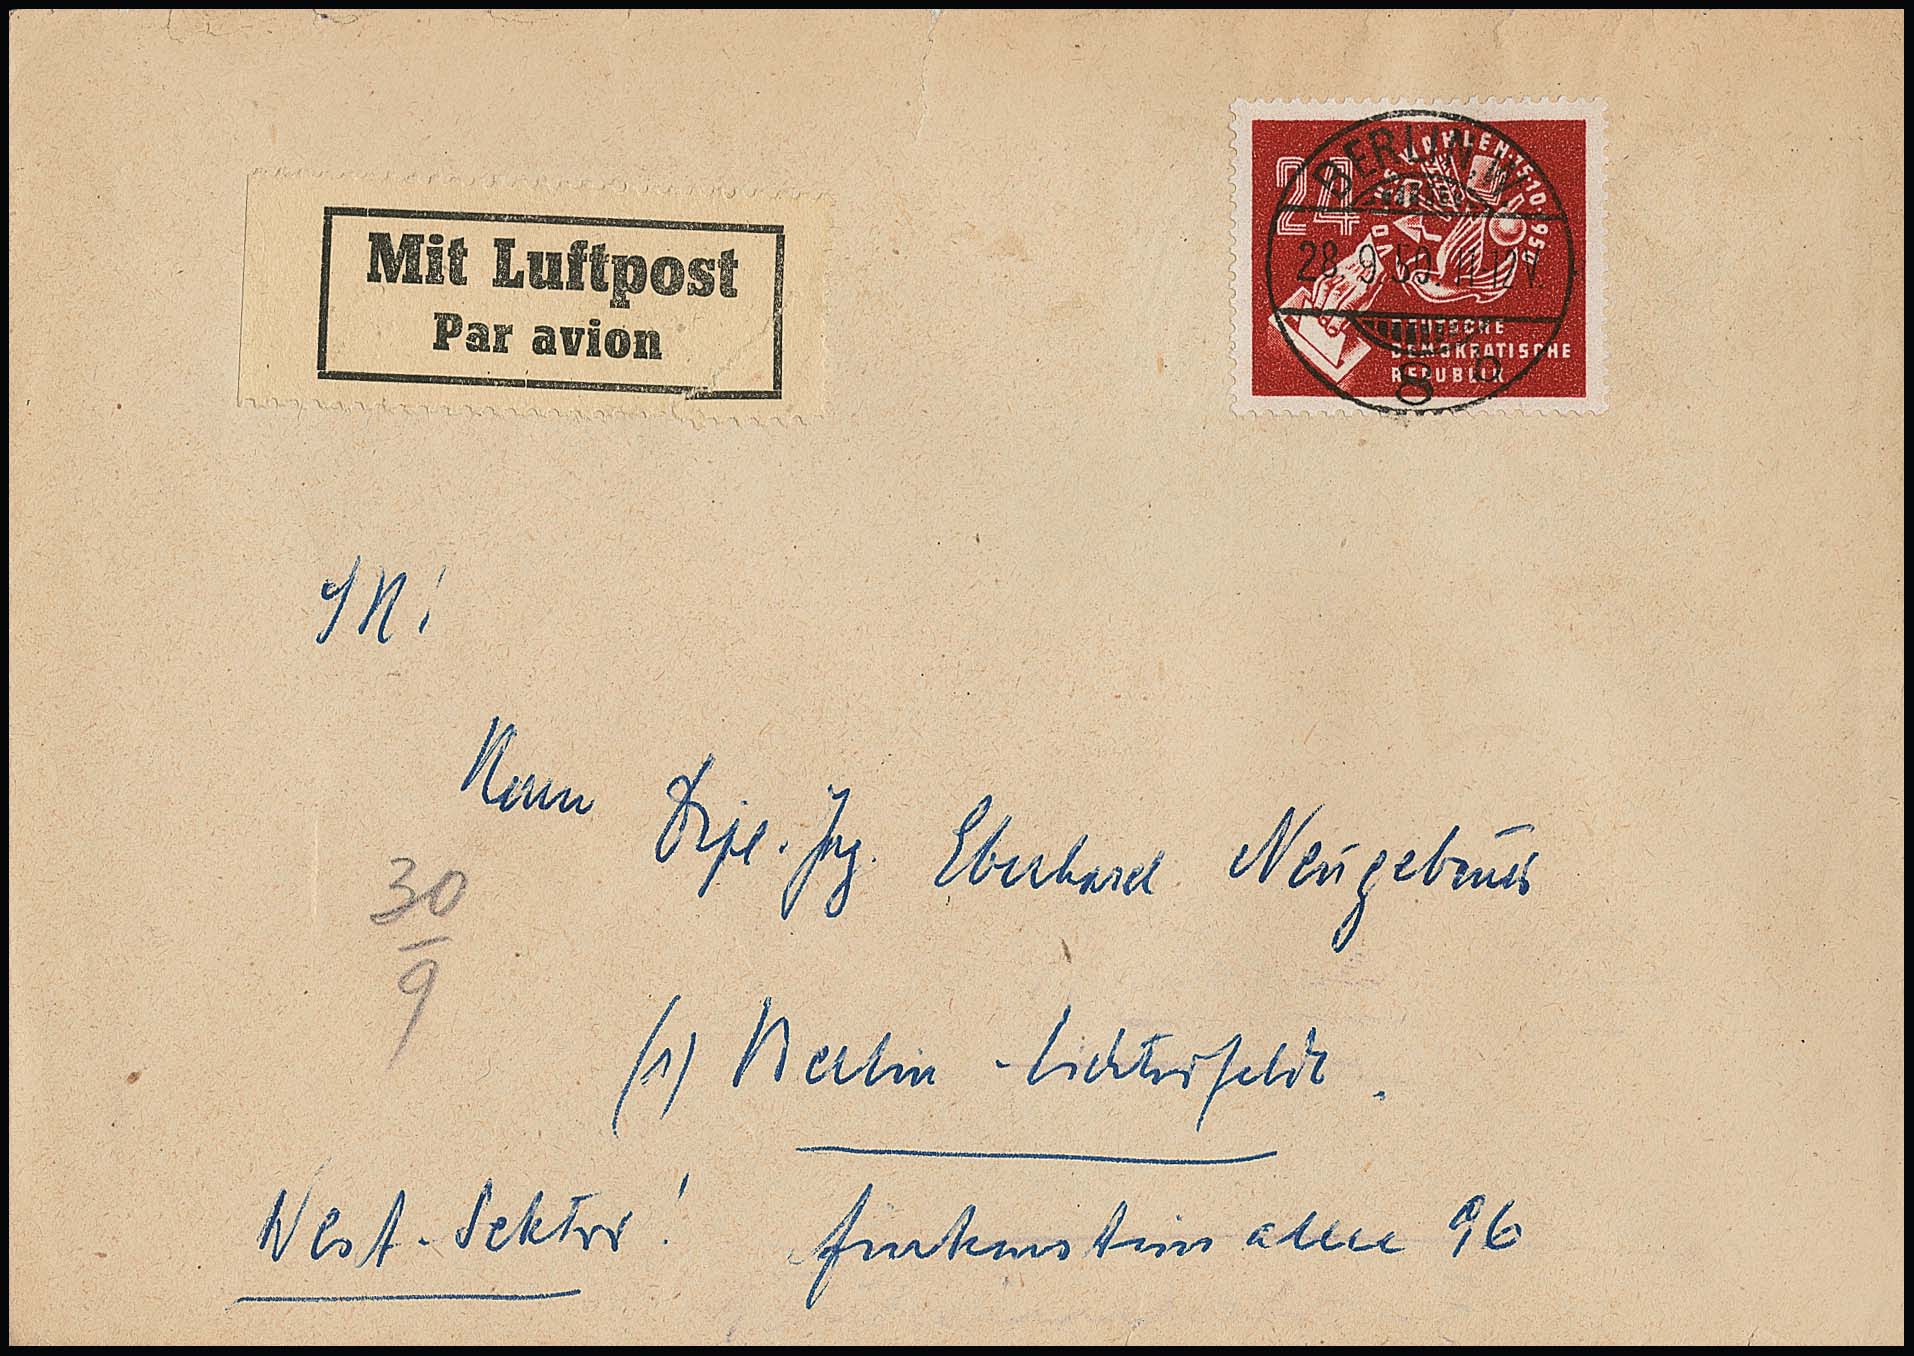 Mit Luftpost
Par avion
24
VOLKSWAHLEN·15·10·1950
DEUTSCHE
DEMOKRATISCHE
REPUBLIK
BERLIN W
28.9.50.11-12V.
8 n
Herrn Dipl.-Ing. Eberhard Neugebauer
30
9
(1) Berlin-Lichterfelde.
West-Sektor! Finkensteinallee 96